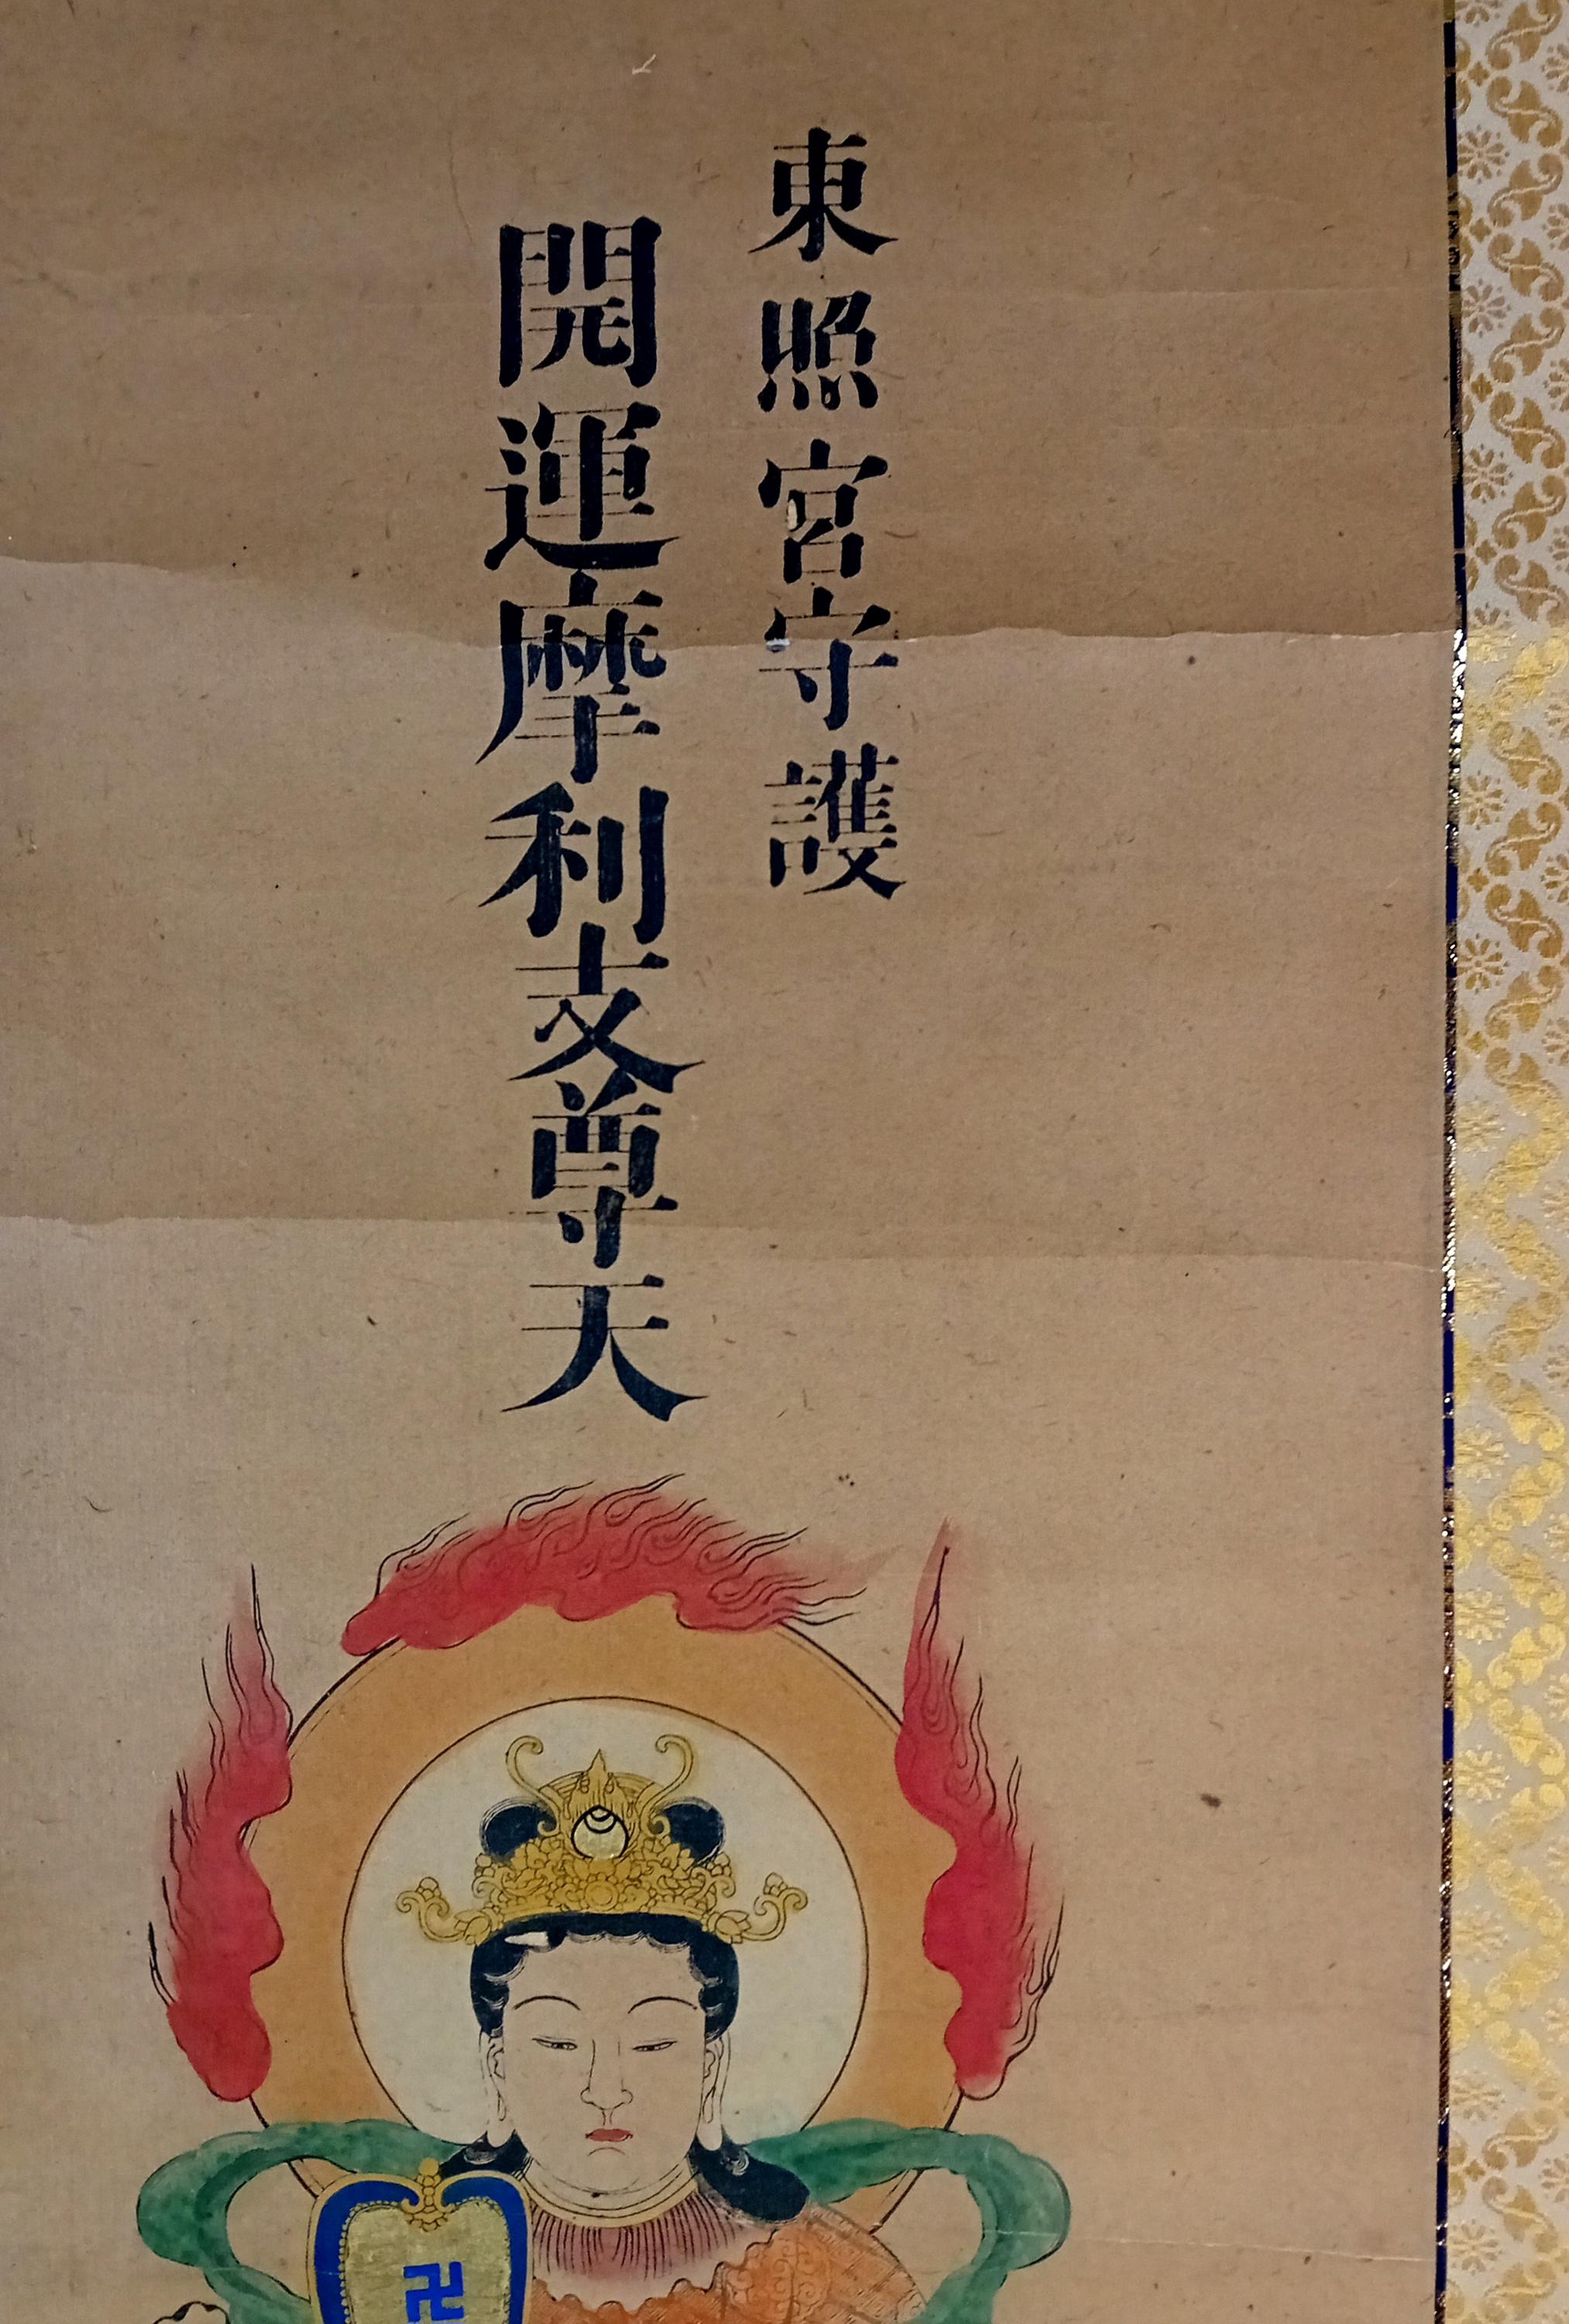 東照宮守護
開運摩利支尊天
卍